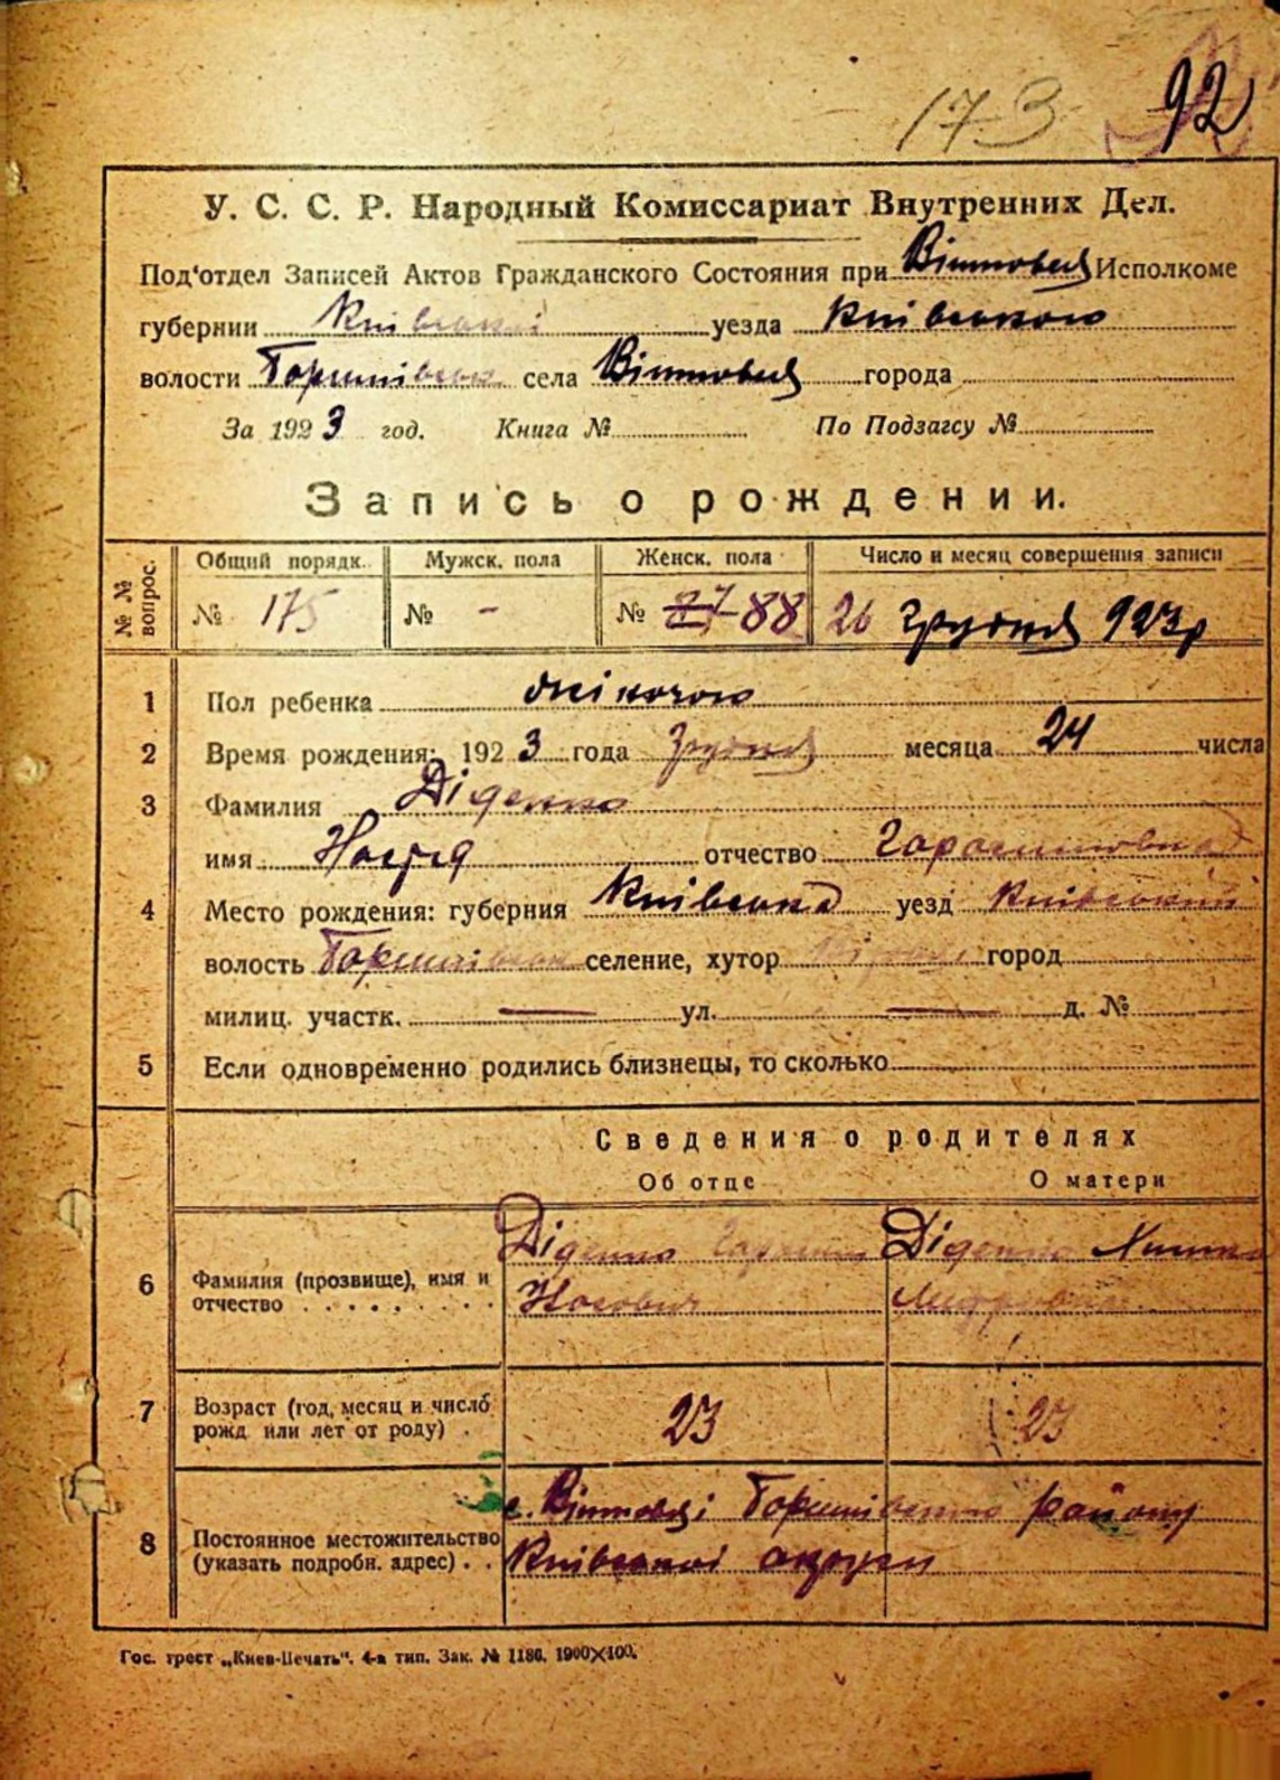 173 92
У. С. С. Р. Народный Комиссариат Внутренних Дел.
Под'отдел Записей Актов Гражданского Состояния при Исполкоме
губернии Київської уезда Київського
волости села города
За 1923 год. Книга № По Подзагсу №
Запись о рождении.
№№ вопрос. Общий порядк. Мужск. пола Женск. пола Число и месяц совершения записи
№ 175 № - № 88 26 Грудня 923р
1 Пол ребенка жіночого
2 Время рождения: 1923 года Грудня месяца 24 числа
3 Фамилия Діденко
имя отчество Гарасимовна
4 Место рождения: губерния Київська уезд Київський
волость селение, хутор город
милиц. участк. — ул. — д. №
5 Если одновременно родились близнецы, то сколько
Сведения о родителях
Об отце О матери
6 Фамилия (прозвище), имя и Діденко Діденко
отчество
7 Возраст (год, месяц и число 23 23
рожд или лет от роду)
8 Постоянное местожительство с. району
(указать подробн. адрес) Київської округи
Гос. трест „Киев-Печать". 4-я тип. Зак. № 1186. 1900×100.